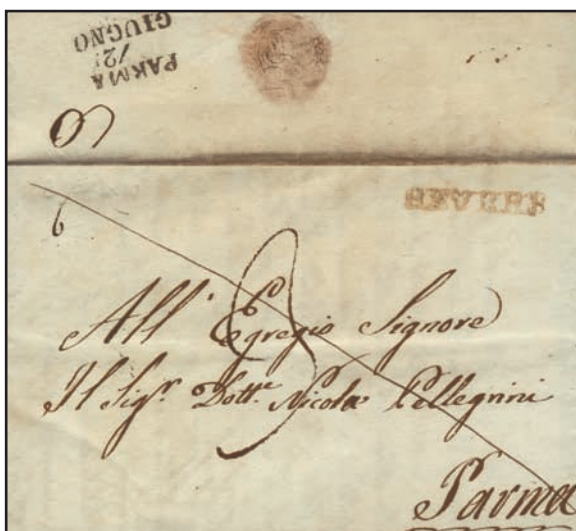 PARMA
GIUGNO
6
3
All' Egregio Signore
Il Sigr. Dottre. Nicola Pellegrini
Parma